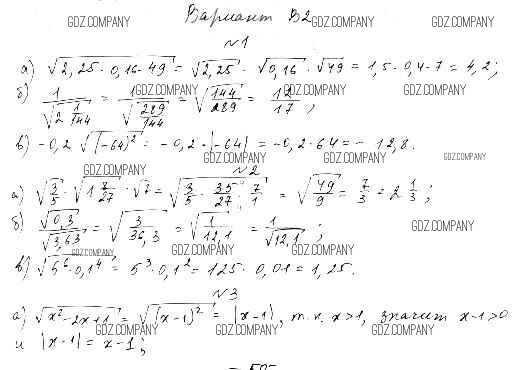 Вариант B2
№1
а) √(2,25 · 0,16 · 49) = √2,25 · √0,16 · √49 = 1,5 · 0,4 · 7 = 4,2;
б) 1/√(2 1/144) = 1/√(289/144) = √(144/289) = 12/17;
в) -0,2 √((-64)²) = -0,2 · |-64| = -0,2 · 64 = -12,8.
№2
а) √(3/5) · √(1 8/27) · √7 = √(3/5 · 35/27 · 7/1) = √(49/9) = 7/3 = 2 1/3;
б) √0,3/√3,63 = √(3/36,3) = √(1/12,1) = 1/√12,1;
в) √(5⁶ · 0,1⁴) = 5³ · 0,1² = 125 · 0,01 = 1,25.
№3
а) √(x² - 2x + 1) = √((x - 1)²) = |x - 1|, т.к. x > 1, значит x - 1 > 0
и |x - 1| = x - 1;
GDZ.COMPANY GDZ.COMPANY GDZ.COMPANY
GDZ.COMPANY GDZ.COMPANY GDZ.COMPANY
GDZ.COMPANY GDZ.COMPANY GDZ.COMPANY
GDZ.COMPANY
GDZ.COMPANY
GDZ.COMPANY GDZ.COMPANY GDZ.COMPANY
GDZ.COMPANY GDZ.COMPANY GDZ.COMPANY